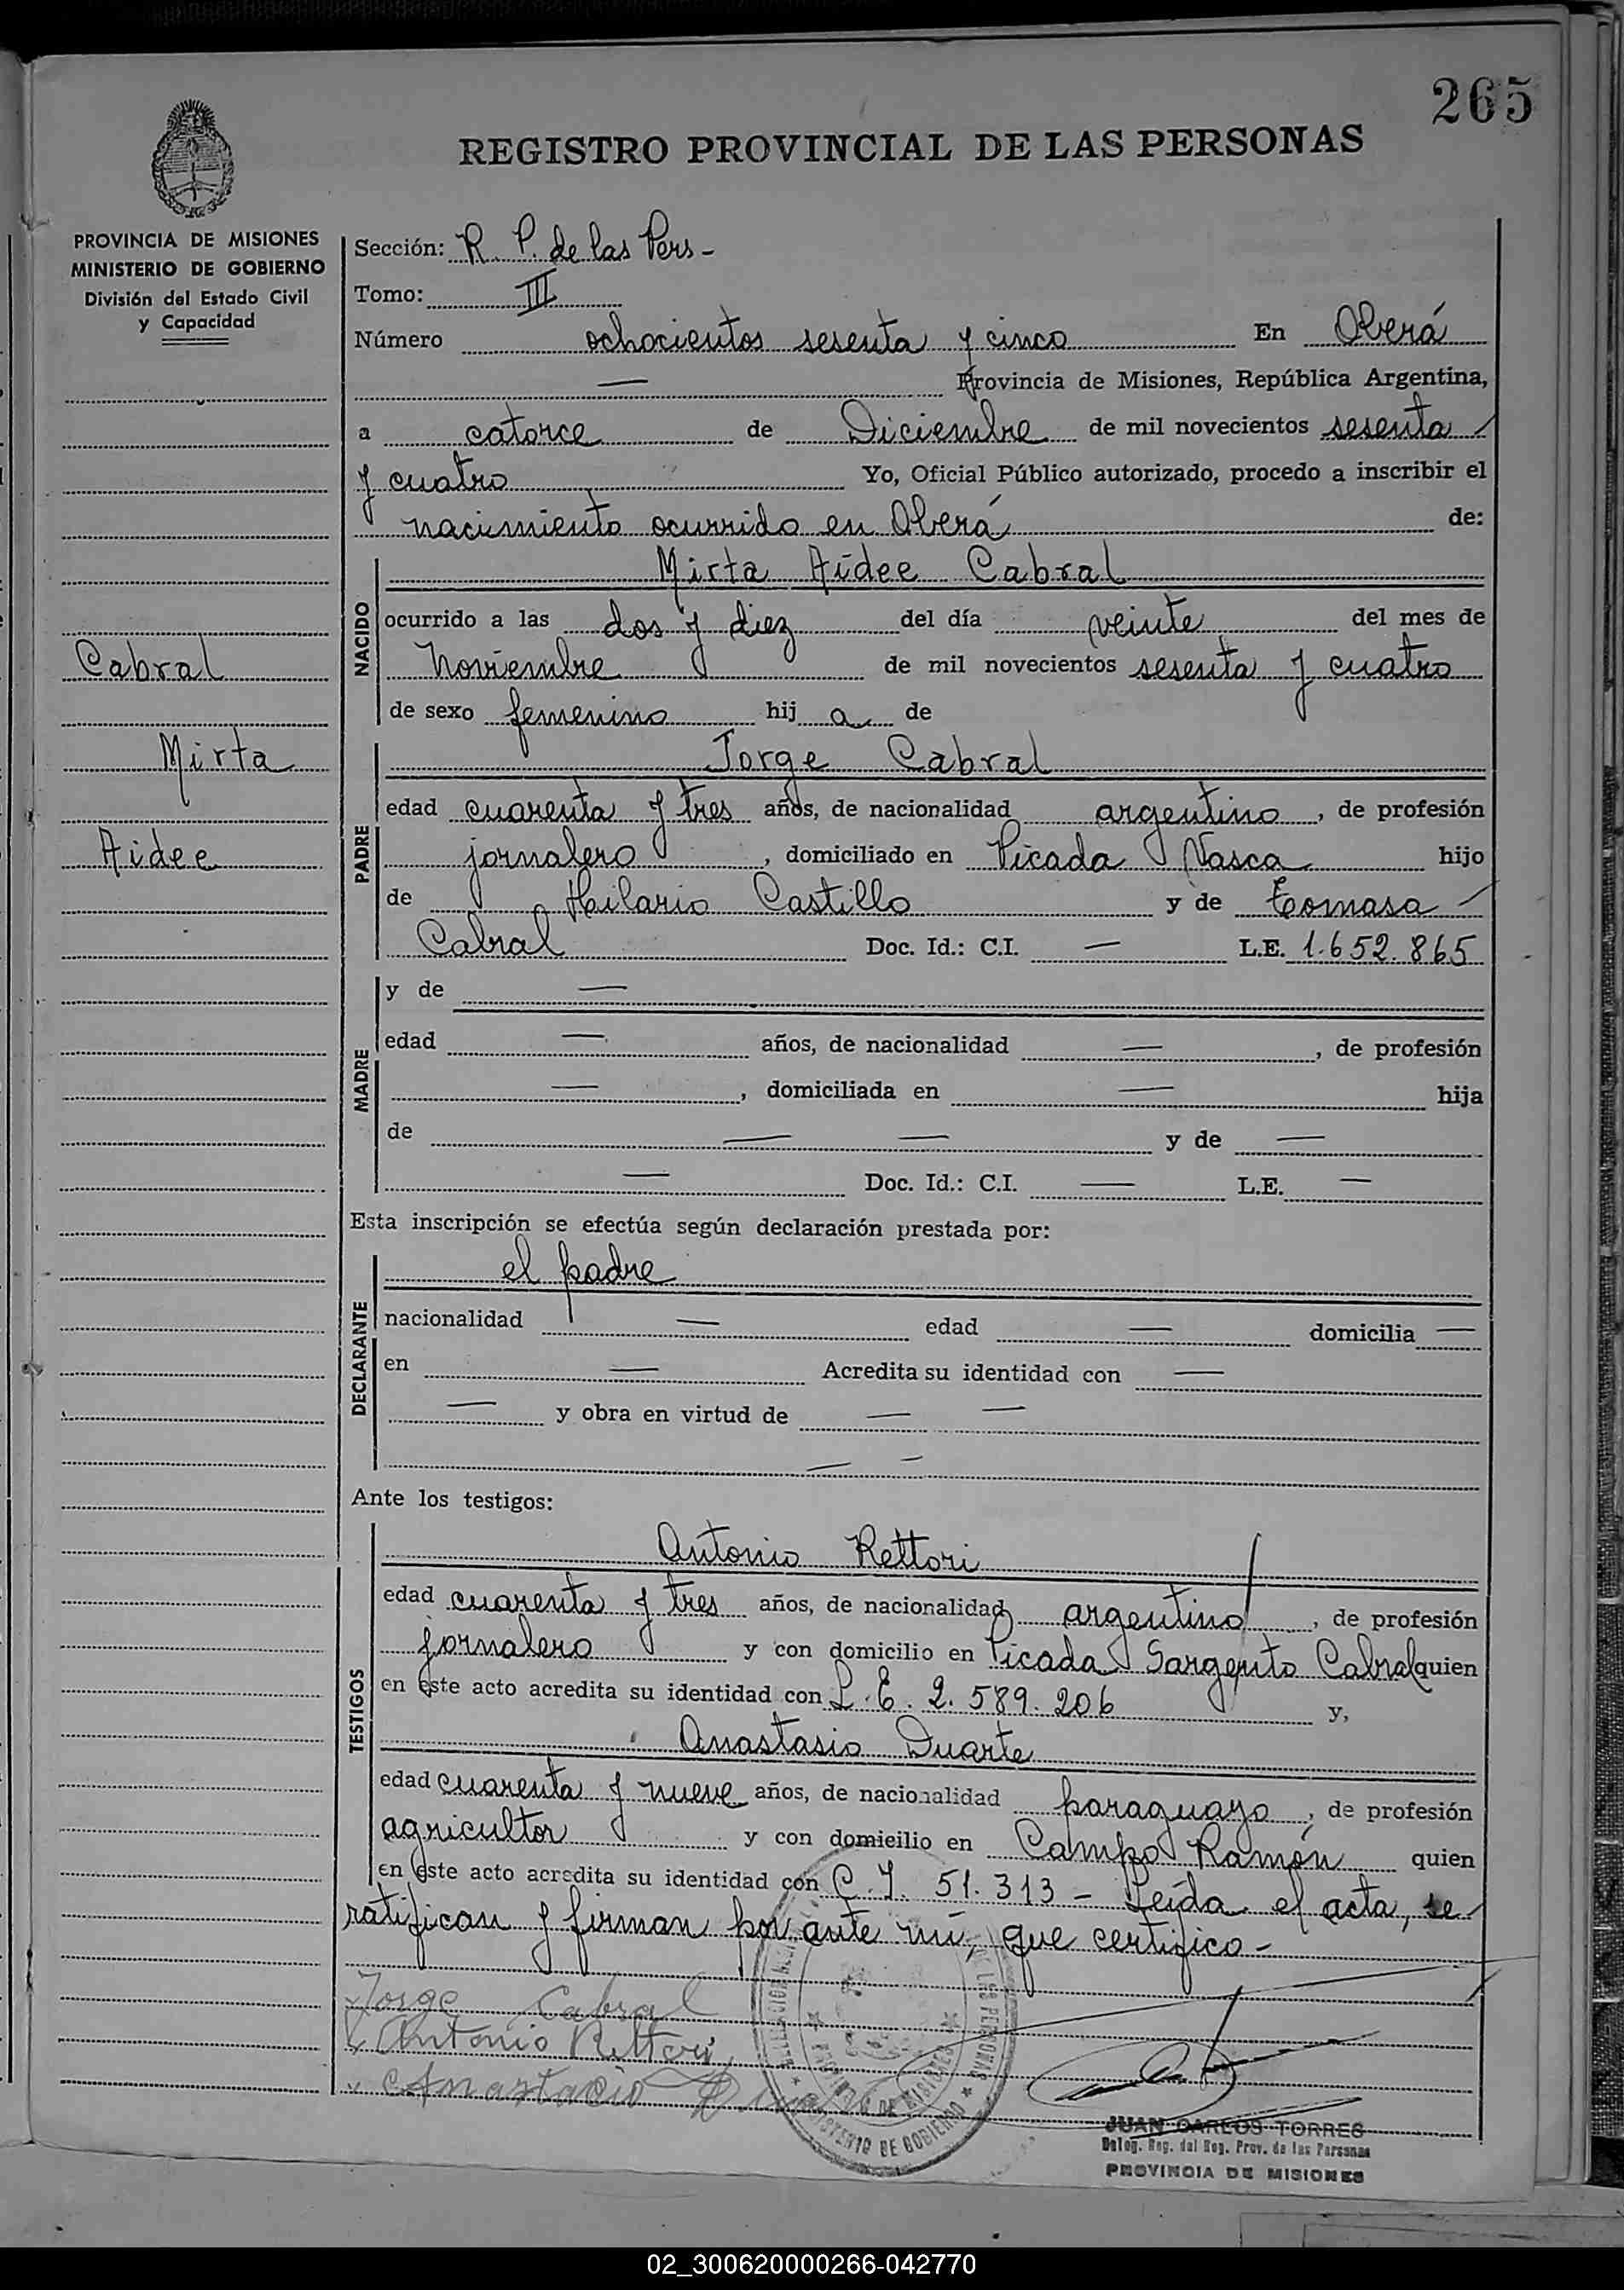 265
REGISTRO PROVINCIAL DE LAS PERSONAS
PROVINCIA DE MISIONES
MINISTERIO DE GOBIERNO
División del Estado Civil
y Capacidad
Cabral
Mirta
Aidee
Sección: R. P. de las Pers -
Tomo: III
Número ochocientos sesenta y cinco En Oberá
— Provincia de Misiones, República Argentina,
a catorce de Diciembre de mil novecientos sesenta
y cuatro Yo, Oficial Público autorizado, procedo a inscribir el
nacimiento ocurrido en Oberá de:
NACIDO
Mirta Aidee Cabral
ocurrido a las dos y diez del día veinte del mes de
Noviembre de mil novecientos sesenta y cuatro
de sexo femenino hij a de
PADRE
Jorge Cabral
edad cuarenta y tres años, de nacionalidad argentino, de profesión
jornalero, domiciliado en Picada Vasca hijo
de Hilario Castillo y de Tomasa
Cabral Doc. Id.: C.I. — L.E. 1.652.865
MADRE
y de —
edad — años, de nacionalidad —, de profesión
—, domiciliada en — hija
de — — y de —
— Doc. Id.: C.I. — L.E. —
Esta inscripción se efectúa según declaración prestada por:
DECLARANTE
el padre
nacionalidad — edad — domicilia —
en — Acredita su identidad con —
— y obra en virtud de — —
— —
Ante los testigos:
TESTIGOS
Antonio Rettori
edad cuarenta y tres años, de nacionalidad argentino, de profesión
jornalero y con domicilio en Picada Sargento Cabral quien
en este acto acredita su identidad con L.E. 2.589.206 y,
Anastasio Duarte
edad cuarenta y nueve años, de nacionalidad paraguayo, de profesión
agricultor y con domicilio en Campo Ramón quien
en este acto acredita su identidad con C.I. 51.313 - Leída el acta, se
ratifican y firman por ante mí, que certifico -
Jorge Cabral
Antonio Rettori
Anastacio
MINISTERIO DE GOBIERNO
PROVINCIA DE MISIONES
DE LAS PERSONAS
JUAN CARLOS TORRES
Deleg. Reg. del Reg. Prov. de las Personas
PROVINCIA DE MISIONES
02_300620000266-042770